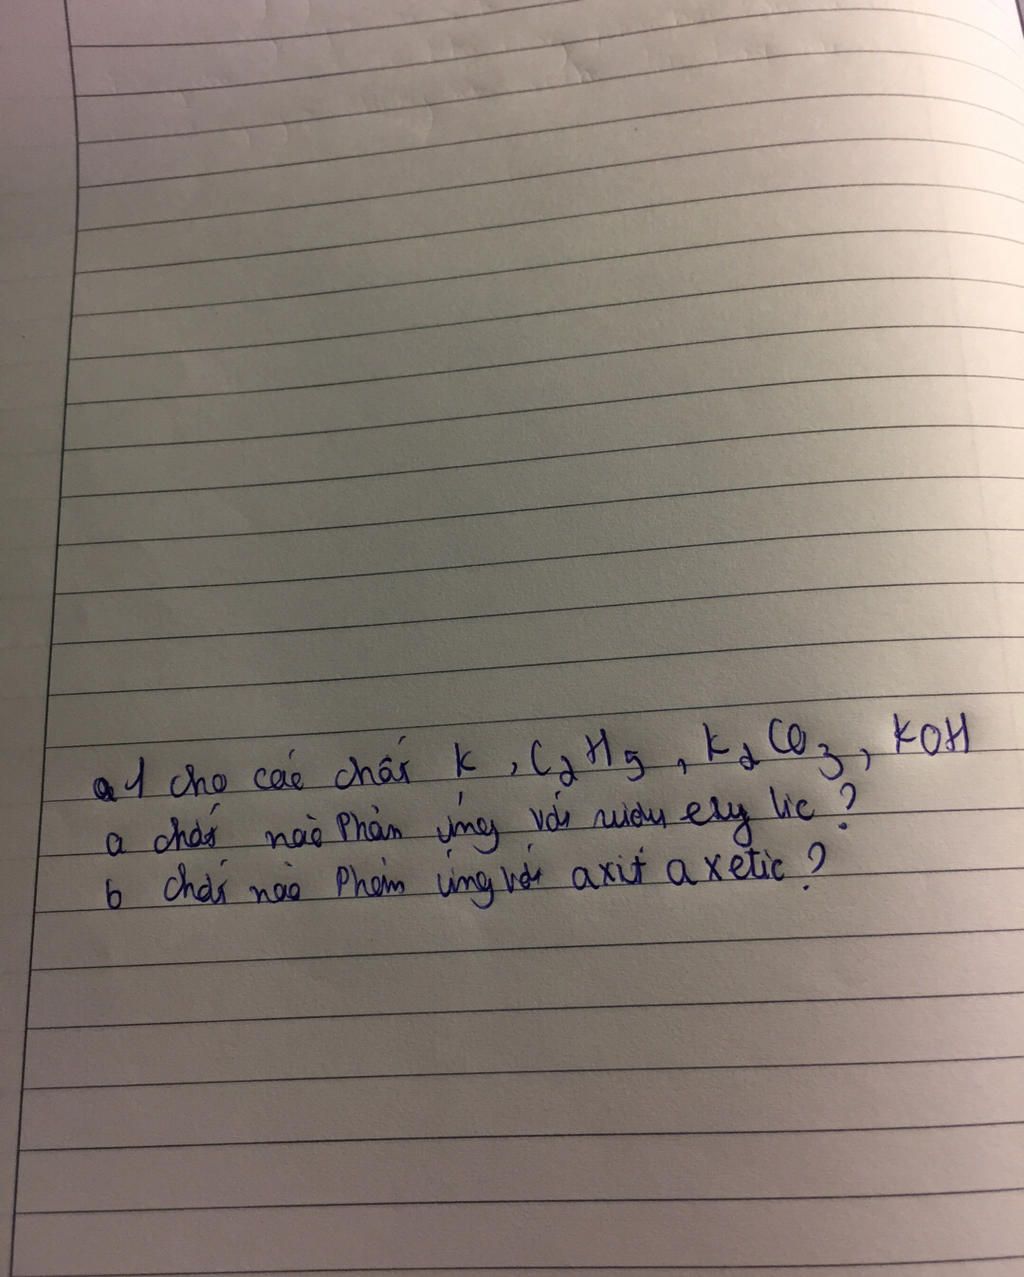 1 cho các chất K, C2H5, K2CO3, KOH
a chất nào Phản ứng với rượu etylic?
b chất nào Phản ứng với axit axetic?